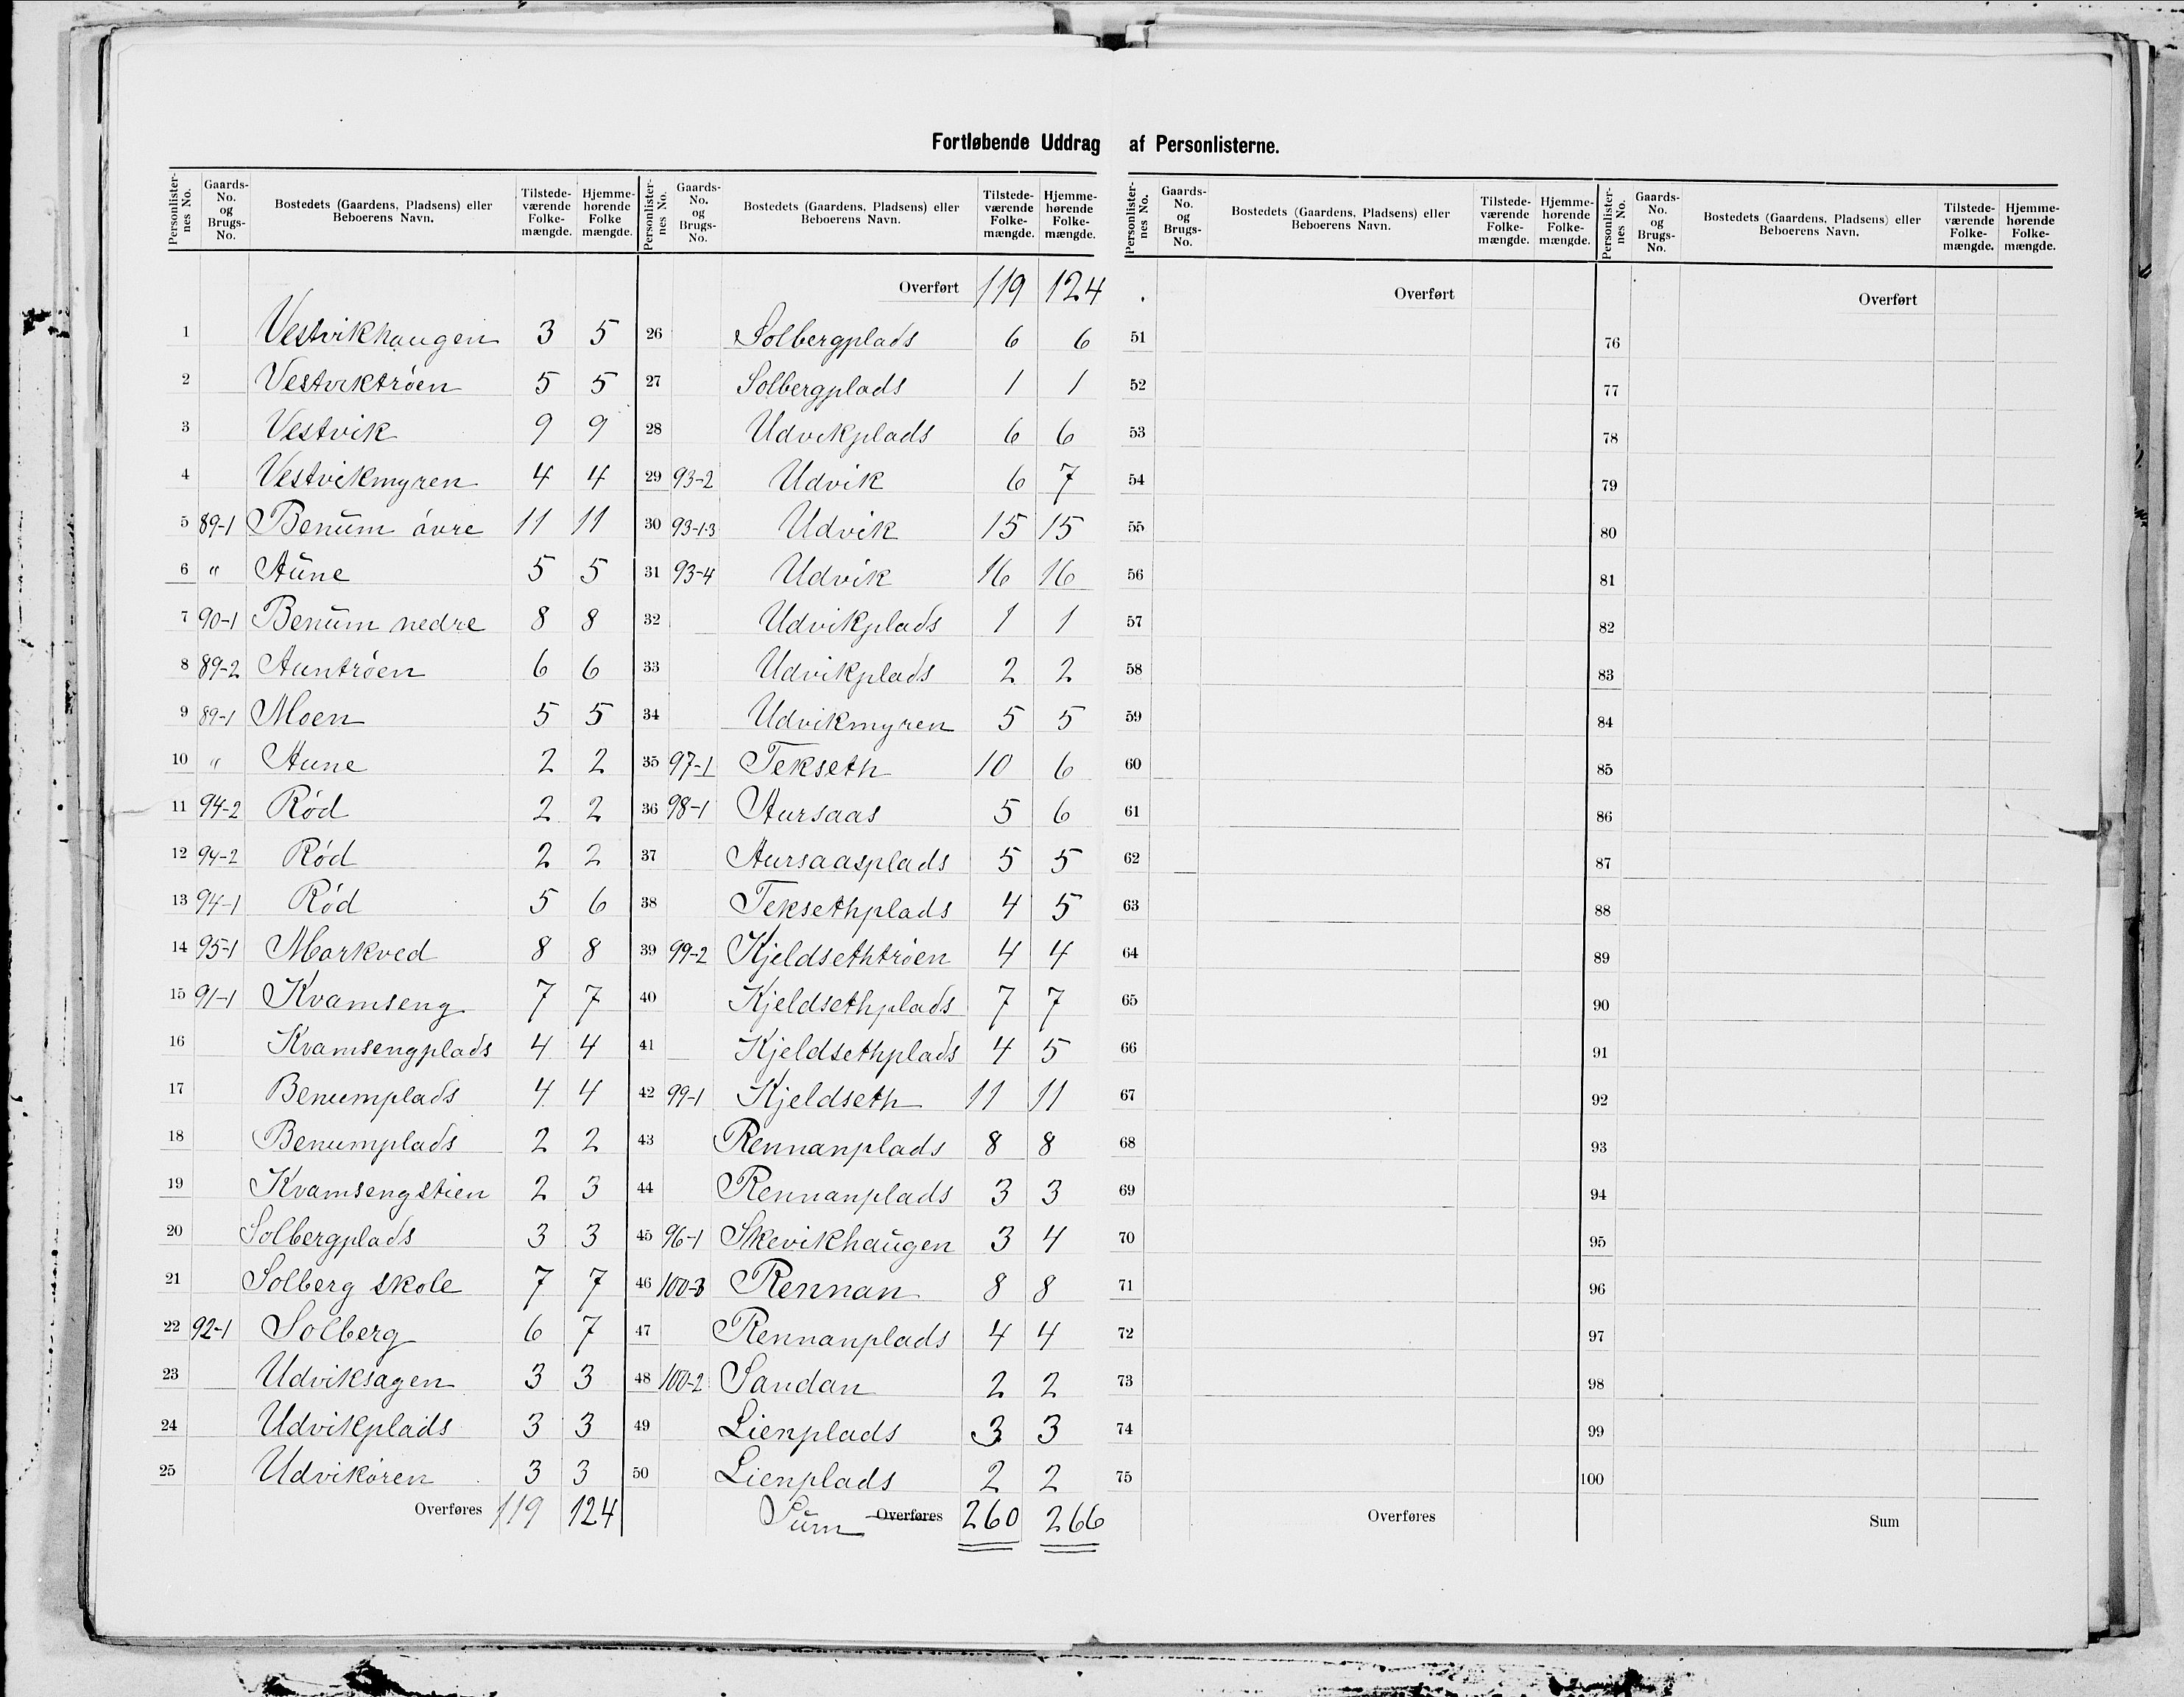 Fortløbende Uddrag af Personlisterne.
Personlister- nes No. | Gaards- No. og Brugs- No. | Bostedets (Gaardens, Pladsens) eller Beboerens Navn. | Tilstede- værende Folke- mængde. | Hjemme- hørende Folke mængde.
1 Vestvikhaugen 3 5
2 Vestviktrøen 5 5
3 Vestvik 9 9
4 Vestvikmyren 4 4
5 89-1 Benum övre 11 11
6 " Aune 5 5
7 90-1 Benum nedre 8 8
8 89-2 Auntrøen 6 6
9 89-1 Moen 5 5
10 " Aune 2 2
11 94-2 Rød 2 2
12 94-2 Rød 2 2
13 94-1 Rød 5 6
14 95-1 Markved 8 8
15 91-1 Kvamseng 7 7
16 Kvamsengplads 4 4
17 Benumplads 4 4
18 Benumplads 2 2
19 Kvamsengstien 2 3
20 Solbergplads 3 3
21 Solberg skole 7 7
22 92-1 Solberg 6 7
23 Udviksagen 3 3
24 Udvikplads 3 3
25 Udvikøren 3 3
Overføres 119 124
Personlister- nes No. | Gaards- No. og Brugs- No. | Bostedets (Gaardens, Pladsens) eller Beboerens Navn. | Tilstede- værende Folke- mængde. | Hjemme- hørende Folke- mængde.
Overført 119 124
26 Solbergplads 6 6
27 Solbergplads 1 1
28 Udvikplads 6 6
29 93-2 Udvik 6 7
30 93-1-3 Udvik 15 15
31 93-4 Udvik 16 16
32 Udvikplads 1 1
33 Udvikplads 2 2
34 Udvikmyren 5 5
35 97-1 Tekseth 10 6
36 98-1 Aursaas 5 6
37 Aursaasplads 5 5
38 Teksethplads 4 5
39 99-2 Kjeldsethtrøen 4 4
40 Kjeldsethplads 7 7
41 Kjeldsethplads 4 5
42 99-1 Kjeldseth 11 11
43 Rennanplads 8 8
44 Rennanplads 3 3
45 96-1 Skevikhaugen 3 4
46 100-3 Rennan 8 8
47 Rennanplads 4 4
48 100-2 Sandan 2 2
49 Lienplads 3 3
50 Lienplads 2 2
Sum Overføres 260 266
Personlister- nes No. | Gaards- No. og Brugs- No. | Bostedets (Gaardens, Pladsens) eller Beboerens Navn. | Tilstede- værende Folke- mængde. | Hjemme- hørende Folke- mængde.
Overført
51
52
53
54
55
56
57
58
59
60
61
62
63
64
65
66
67
68
69
70
71
72
73
74
75
Overføres
Personlister- nes No. | Gaards- No. og Brugs- No. | Bostedets (Gaardens, Pladsens) eller Beboerens Navn. | Tilstede- værende Folke- mængde. | Hjemme- hørende Folke- mængde.
Overført
76
77
78
79
80
81
82
83
84
85
86
87
88
89
90
91
92
93
94
95
96
97
98
99
100
Sum